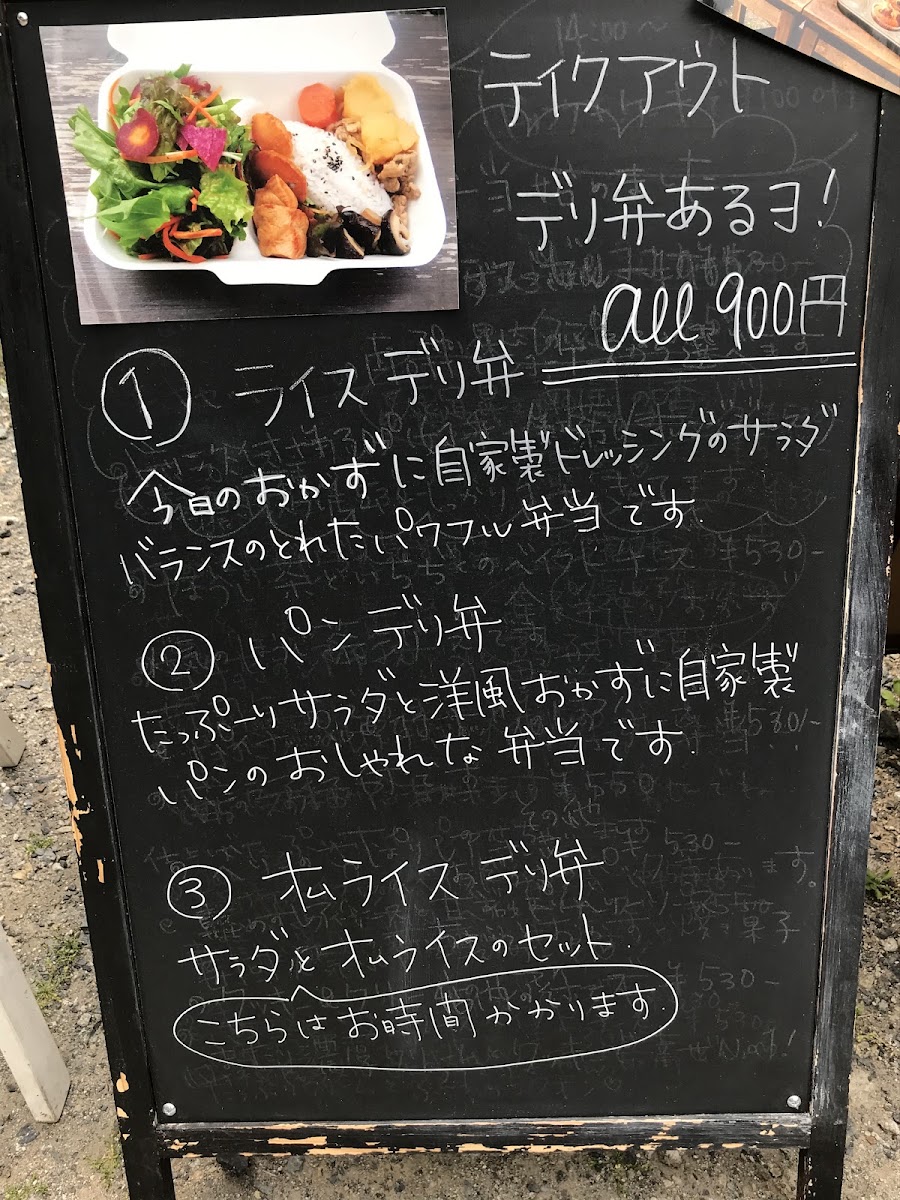 テイクアウト
デリ弁あるヨ!
all 900円
① ライス デリ弁
今日のおかずに自家製ドレッシングのサラダ
バランスのとれたパワフル弁当です.
② パンデリ弁
たっぷーりサラダと洋風おかずに自家製
パンのおしゃれな弁当です.
③ オムライス デリ弁
サラダとオムライスのセット.
こちらはお時間かかります.